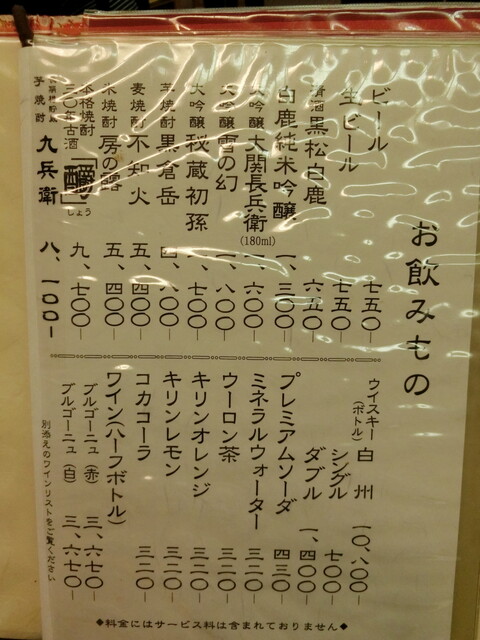 お飲みもの
ビール 七五〇—
生ビール 七五〇—
清酒 黒松白鹿 六五〇—
白鹿純米吟醸 一、三〇〇—
大吟醸 大関長兵衛 (180ml) 一、六〇〇—
大吟醸 雪の幻 一、八〇〇—
大吟醸 秘蔵初孫 一、七〇〇—
芋焼酎 黒倉岳 四、八〇〇—
麦焼酎 不知火 五、四〇〇—
米焼酎 房の露 五、四〇〇—
本格焼酎 三〇年古酒 「醑」 しょう 九、七〇〇—
芋焼酎 九兵衛 八、一〇〇—
ウイスキー (ボトル) 白州 一〇、八〇〇—
シングル 七〇〇—
ダブル 一、四〇〇—
プレミアムソーダ 四三〇—
ミネラルウォーター 三二〇—
ウーロン茶 三二〇—
キリンオレンジ 三二〇—
キリンレモン 三二〇—
コカコーラ 三二〇—
ワイン(ハーフボトル)
ブルゴーニュ(赤) 三、六七〇—
ブルゴーニュ(白) 三、六七〇—
別添えのワインリストをご覧ください
◆料金にはサービス料は含まれておりません◆